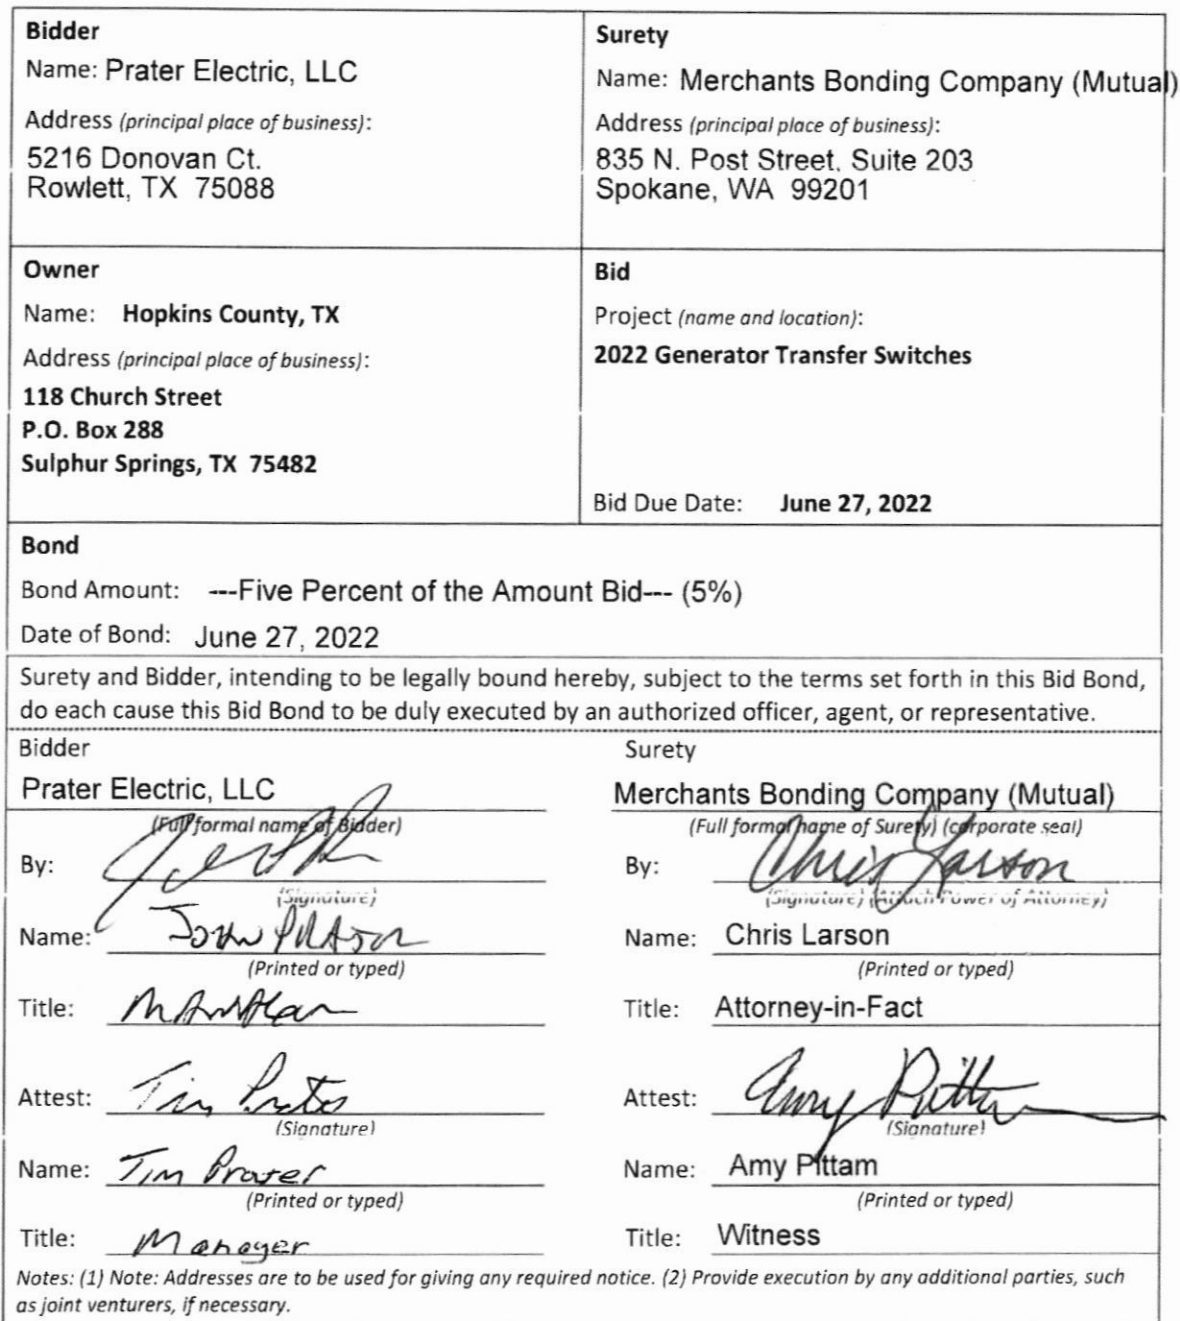 Bidder
Name: Prater Electric, LLC
Address (principal place of business):
5216 Donovan Ct.
Rowlett, TX 75088
Surety
Name: Merchants Bonding Company (Mutual)
Address (principal place of business):
835 N. Post Street, Suite 203
Spokane, WA 99201
Owner
Name: Hopkins County, TX
Address (principal place of business):
118 Church Street
P.O. Box 288
Sulphur Springs, TX 75482
Bid
Project (name and location):
2022 Generator Transfer Switches
Bid Due Date: June 27, 2022
Bond
Bond Amount: ---Five Percent of the Amount Bid--- (5%)
Date of Bond: June 27, 2022
Surety and Bidder, intending to be legally bound hereby, subject to the terms set forth in this Bid Bond,
do each cause this Bid Bond to be duly executed by an authorized officer, agent, or representative.
Bidder
Prater Electric, LLC
(Full formal name of Bidder)
By:
(Signature)
Name: John Prater
(Printed or typed)
Title:
Attest: Tim Prater
(Signature)
Name: Tim Prater
(Printed or typed)
Title: Manager
Surety
Merchants Bonding Company (Mutual)
(Full formal name of Surety) (corporate seal)
By: Chris Larson
(Signature) (Attach Power of Attorney)
Name: Chris Larson
(Printed or typed)
Title: Attorney-in-Fact
Attest: Amy Pittam
(Signature)
Name: Amy Pittam
(Printed or typed)
Title: Witness
Notes: (1) Note: Addresses are to be used for giving any required notice. (2) Provide execution by any additional parties, such
as joint venturers, if necessary.